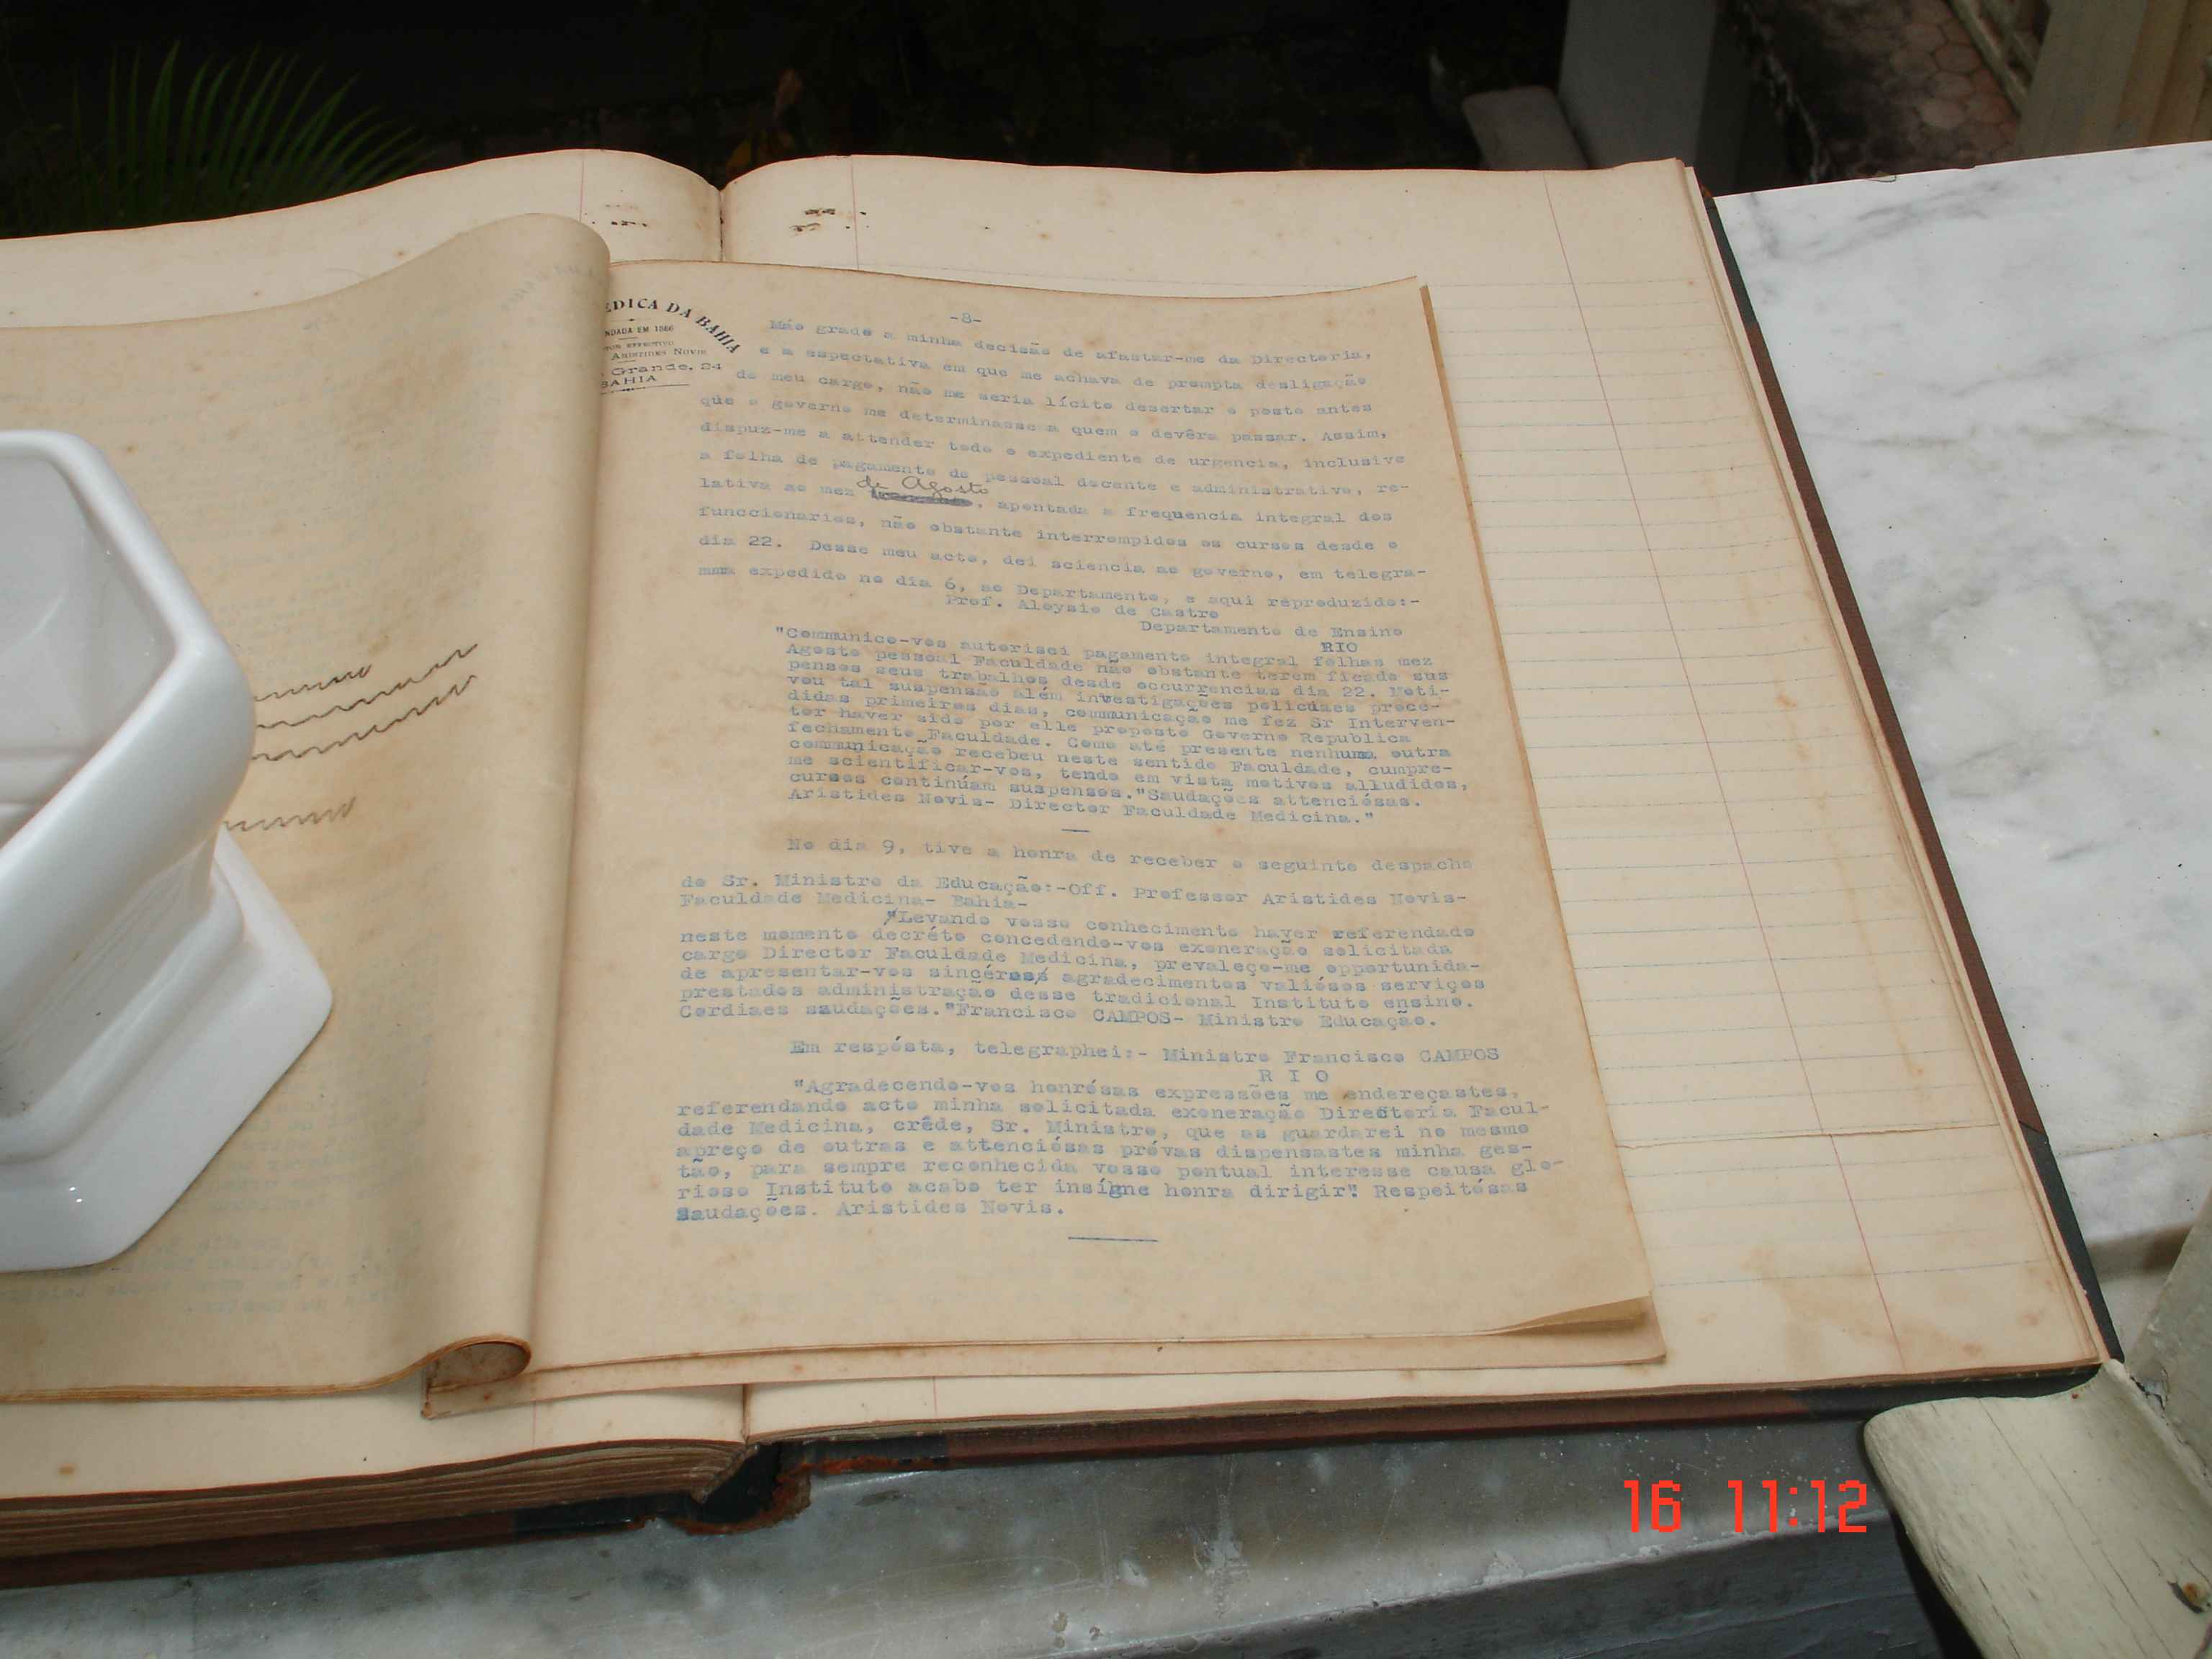 EDICA DA BAHIA
NDADA EM 1866
TOR EFFECTIVO
ARISTIDES NOVIS
Grande, 24
BAHIA
-8-
Máo grado a minha decisão de afastar-me da Directoria,
e a espectativa em que me achava de prompta desligação
do meu cargo, não me seria lícito desertar o posto antes
que o governo me determinasse a quem o devêra passar. Assim,
dispuz-me a attender todo o expediente de urgencia, inclusive
a folha de pagamento do pessoal docente e administrativo, re-
lativa ao mez de Agosto, apontada a frequencia integral dos
funccionarios, não obstante interrompidos os cursos desde o
dia 22. Desse meu acto, dei sciencia ao governo, em telegra-
mma expedido no dia 6, ao Departamento, e aqui reproduzido:-
Prof. Aloysio de Castro
Departamento de Ensino
RIO
"Communico-vos autorisei pagamento integral folhas mez
Agosto pessoal Faculdade não obstante terem ficado sus
pensos seus trabalhos desde occurrencias dia 22. Moti-
vou tal suspensão além investigações policiaes proce-
didas primeiros dias, communicação me fez Sr Interven-
tor haver sido por elle proposto Governo Republica
fechamento Faculdade. Como até presente nenhuma outra
communicação recebeu neste sentido Faculdade, cumpre-
me scientificar-vos, tendo em vista motivos alludidos,
cursos continúam suspensos."Saudações attenciósas.
Aristides Novis- Director Faculdade Medicina."
No dia 9, tive a honra de receber o seguinte despacho
do Sr. Ministro da Educação:-Off. Professor Aristides Novis-
Faculdade Medicina- Bahia-
"Levando vosso conhecimento haver referendado
neste momento decréto concedendo-vos exoneração solicitada
cargo Director Faculdade Medicina, prevaleço-me opportunida-
de apresentar-vos sincéros agradecimentos valiósos serviços
prestados administração desse tradicional Instituto ensino.
Cordiaes saudações."Francisco CAMPOS- Ministro Educação.
Em respósta, telegraphei:- Ministro Francisco CAMPOS
R I O
"Agradecendo-vos honrósas expressões me endereçastes,
referendando acto minha solicitada exoneração Directoria Facul-
dade Medicina, crêde, Sr. Ministro, que as guardarei no mesmo
apreço de outras e attenciósas próvas dispensastes minha ges-
tão, para sempre reconhecida vosso pontual interesse causa glo-
rioso Instituto acabo ter insígne honra dirigir". Respeitósas
Saudações. Aristides Novis.
16 11:12